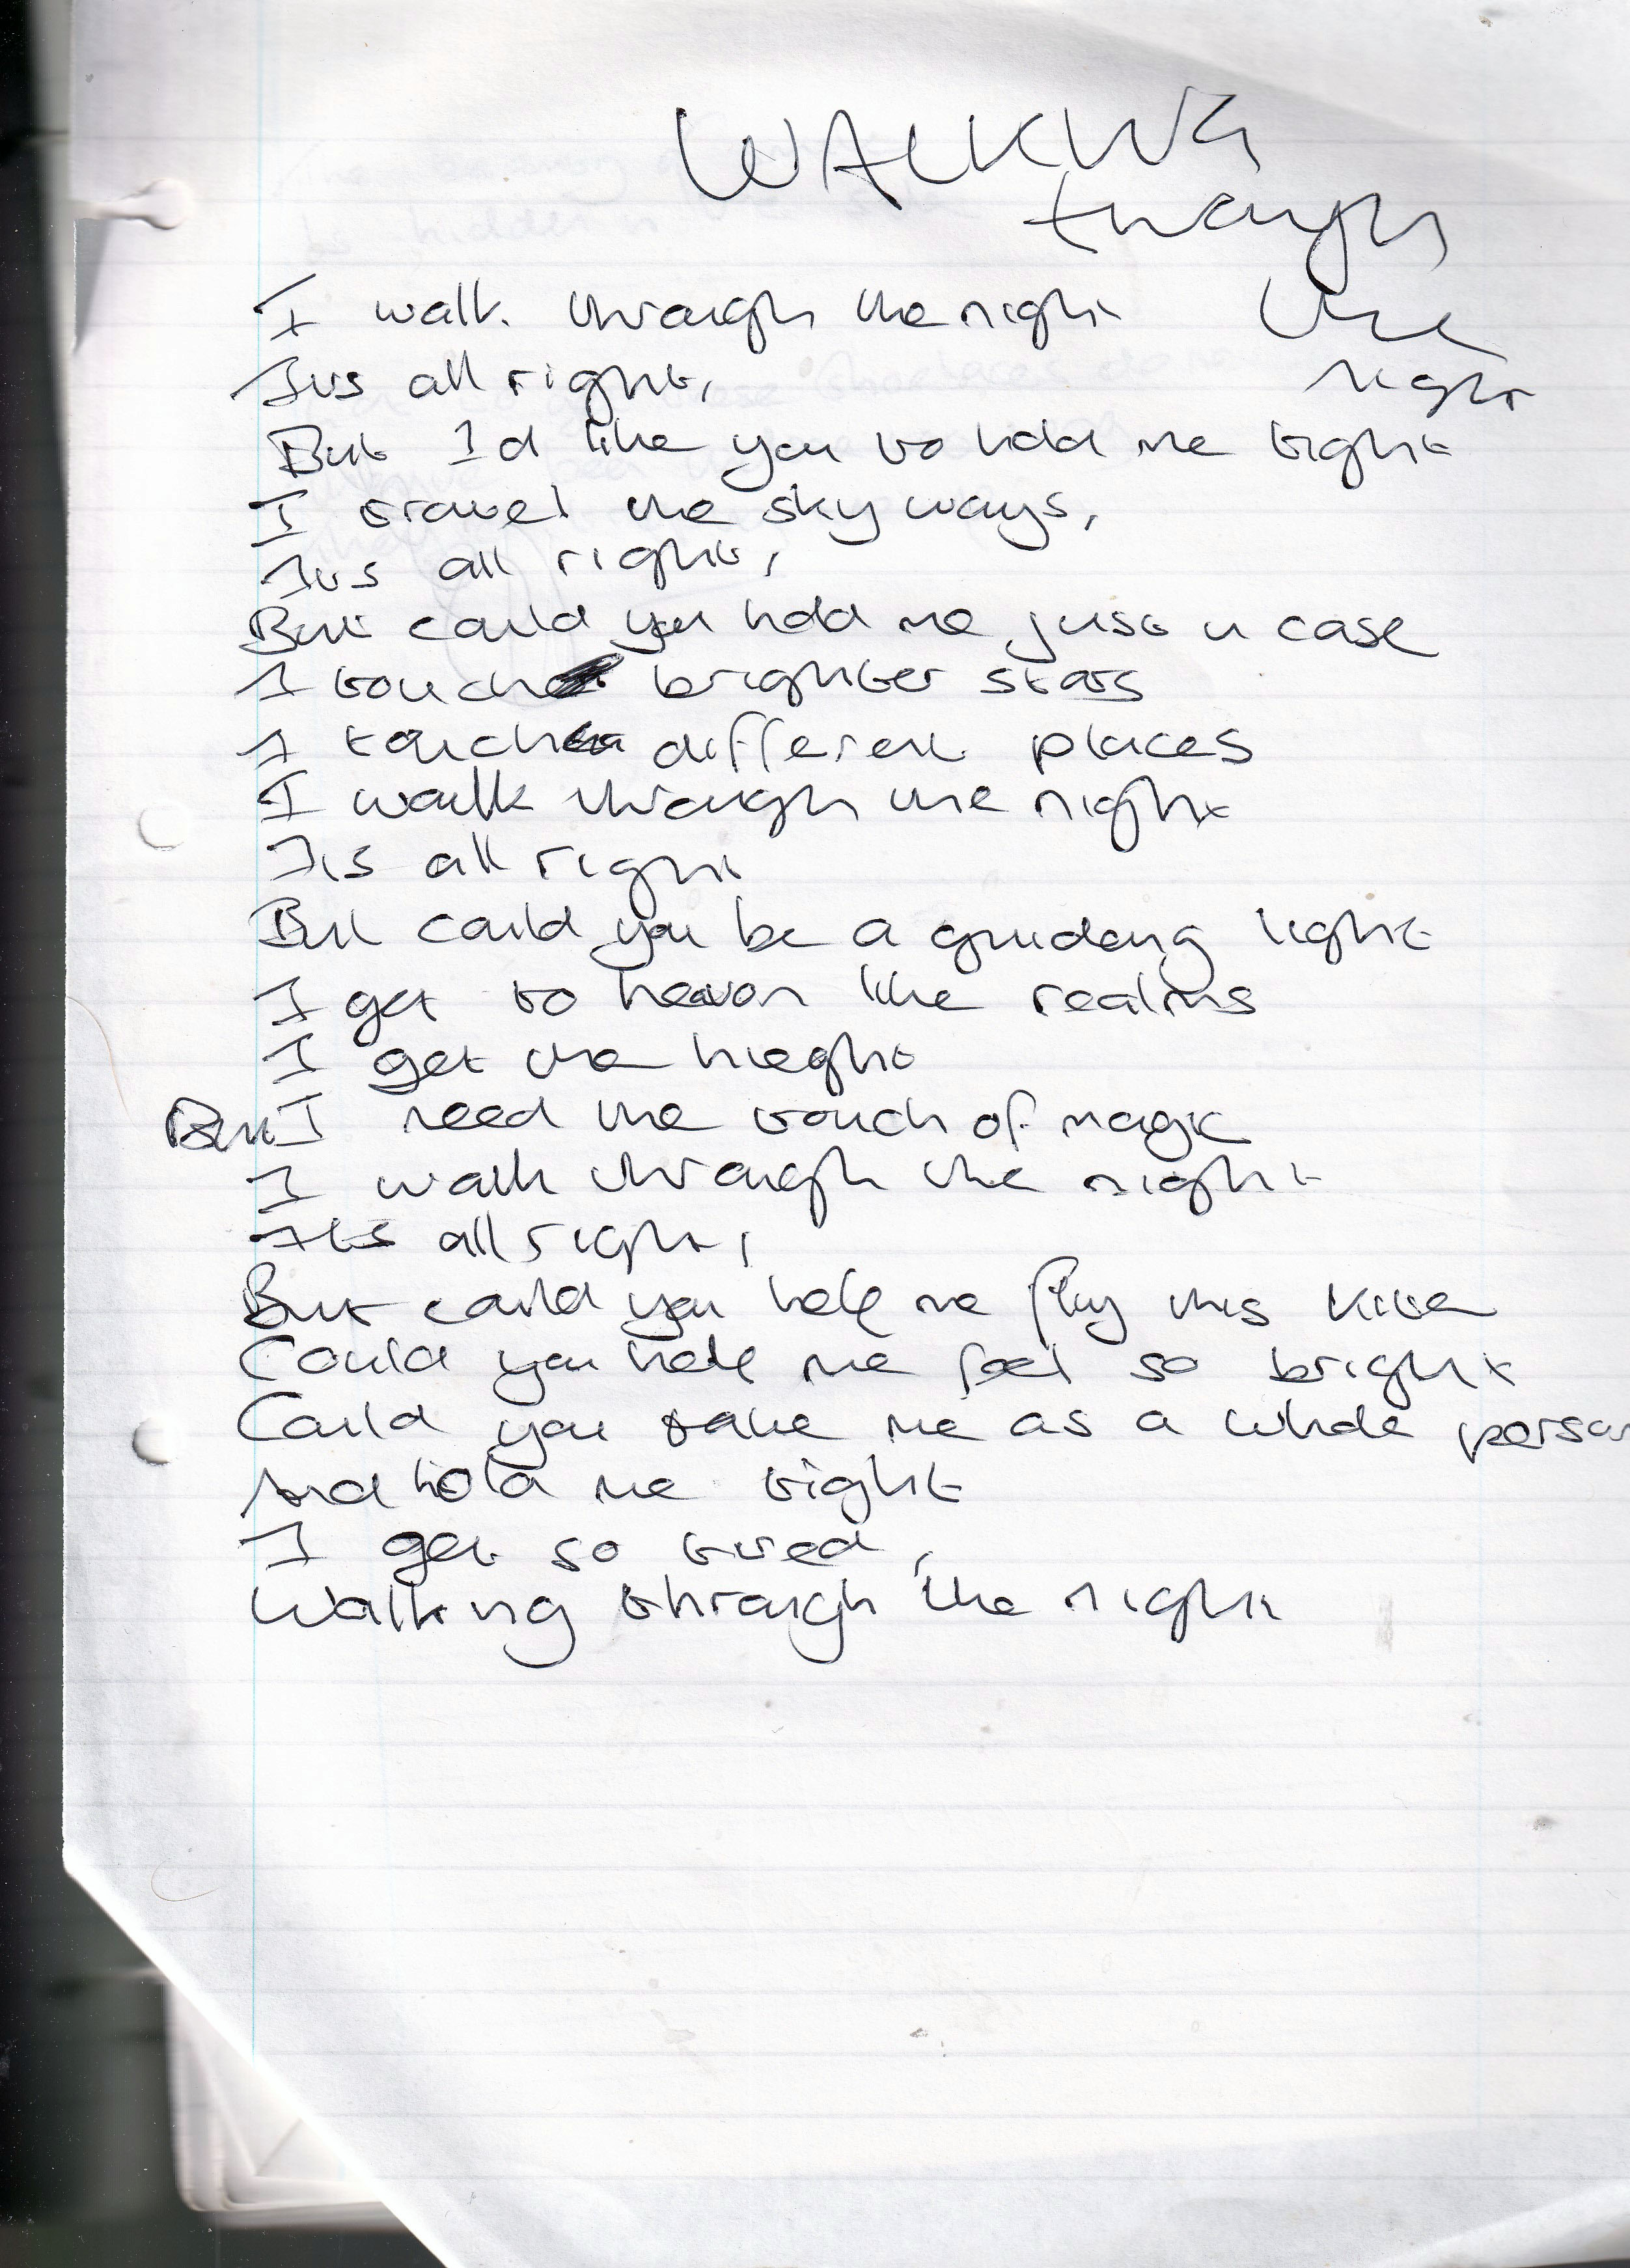 WALKING
through
the
night
I walk through the night
Its all right,
But I'd like you to hold me tight
I travel the sky ways,
Its all right,
But could you hold me just in case
I touch brighter stars
I touch different places
I walk through the night
Its all right
But could you be a guiding light
I get to heaven like realms
I get the hieght
But I need the touch of magic
I walk through the night
Its all right,
But could you help me fly this kite
Could you help me feel so bright
Could you take me as a whole person
And hold me tight
I get so tired,
Walking through the night